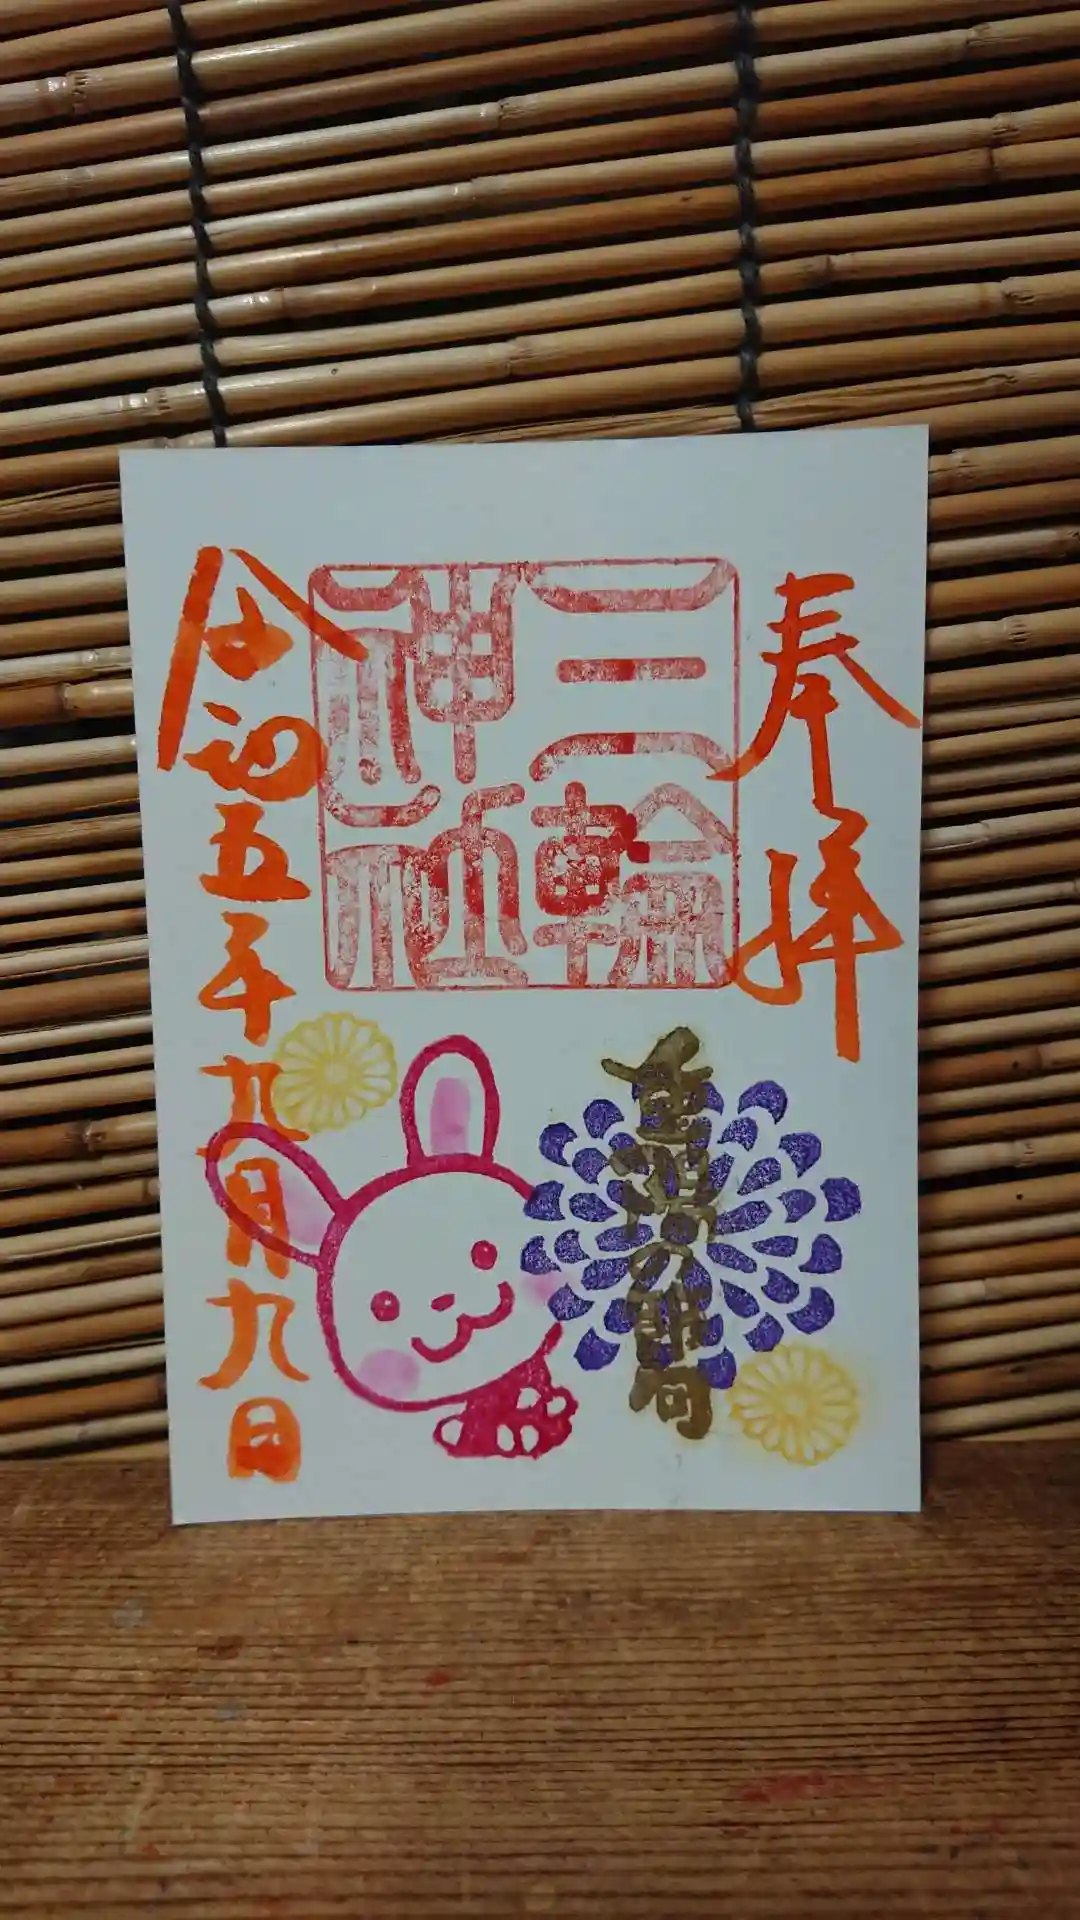 奉拝
三輪
神社
重陽の節句
令和五年九月九日